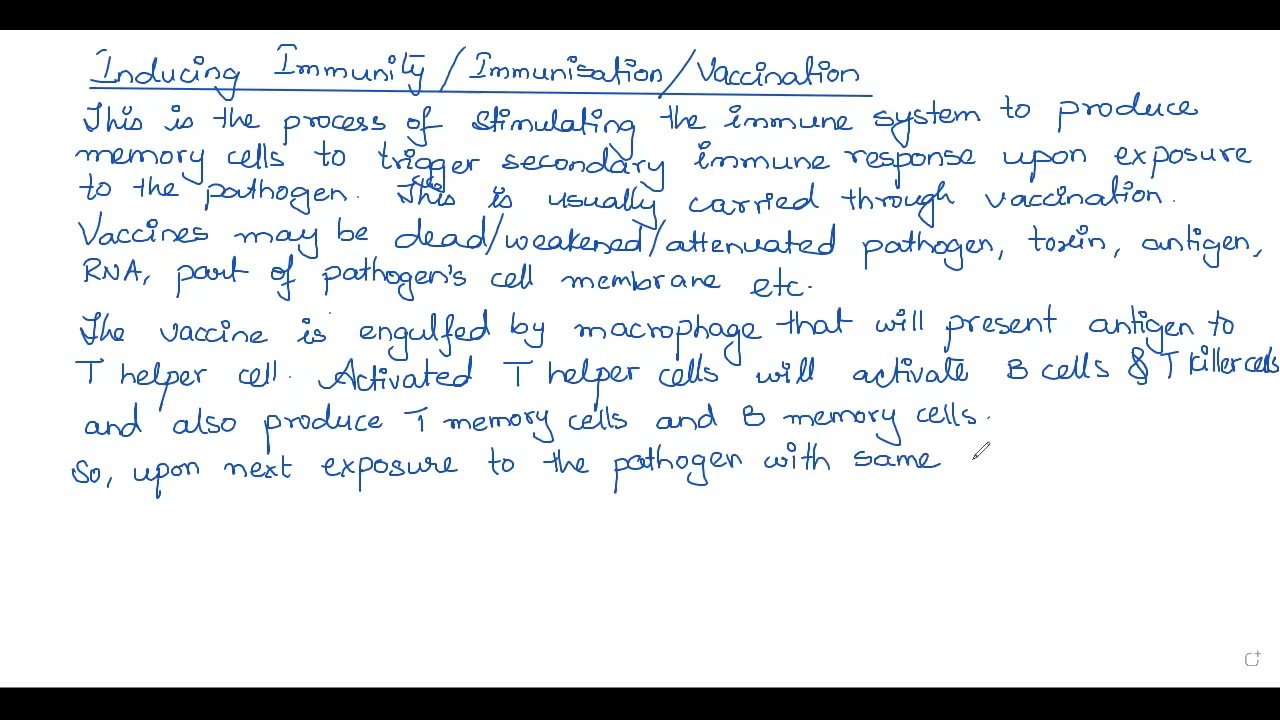 Inducing Immunity/Immunisation/Vaccination
This is the process of stimulating the immune system to produce
memory cells to trigger secondary immune response upon exposure
to the pathogen. This is usually carried through vaccination.
Vaccines may be dead/weakened/attenuated pathogen, toxin, antigen,
RNA, part of pathogen's cell membrane etc.
The vaccine is engulfed by macrophage that will present antigen to
T helper cell. Activated T helper cells will activate B cells & T killer cells
and also produce T memory cells and B memory cells.
So, upon next exposure to the pathogen with same